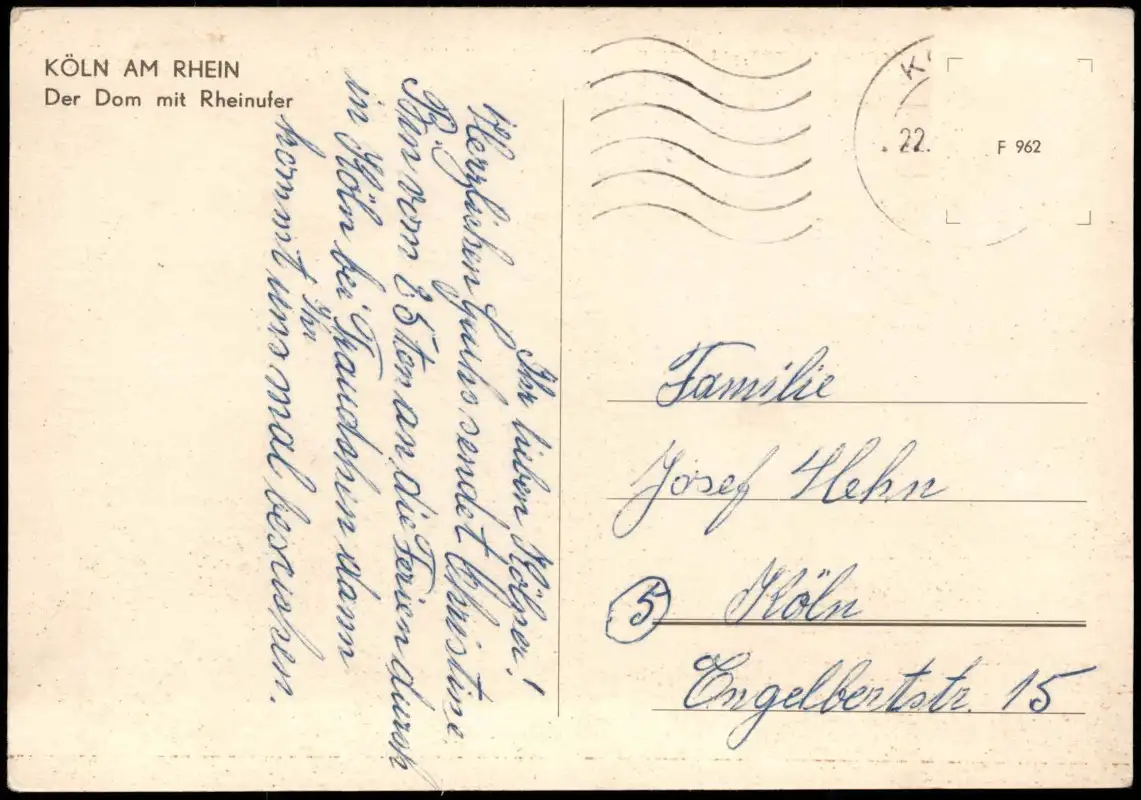 KÖLN AM RHEIN
Der Dom mit Rheinufer
Ihr lieben Kölner!
Herzlichen Gruhs sendet Christine.
Bin vom 25ten an die Ferien dursh
in Köln bei Traudshen dann
Ihr
kommt uns mal besushen.
22.
F 962
Familie
Josef Hehn
5 Köln
Engelbertstr. 15